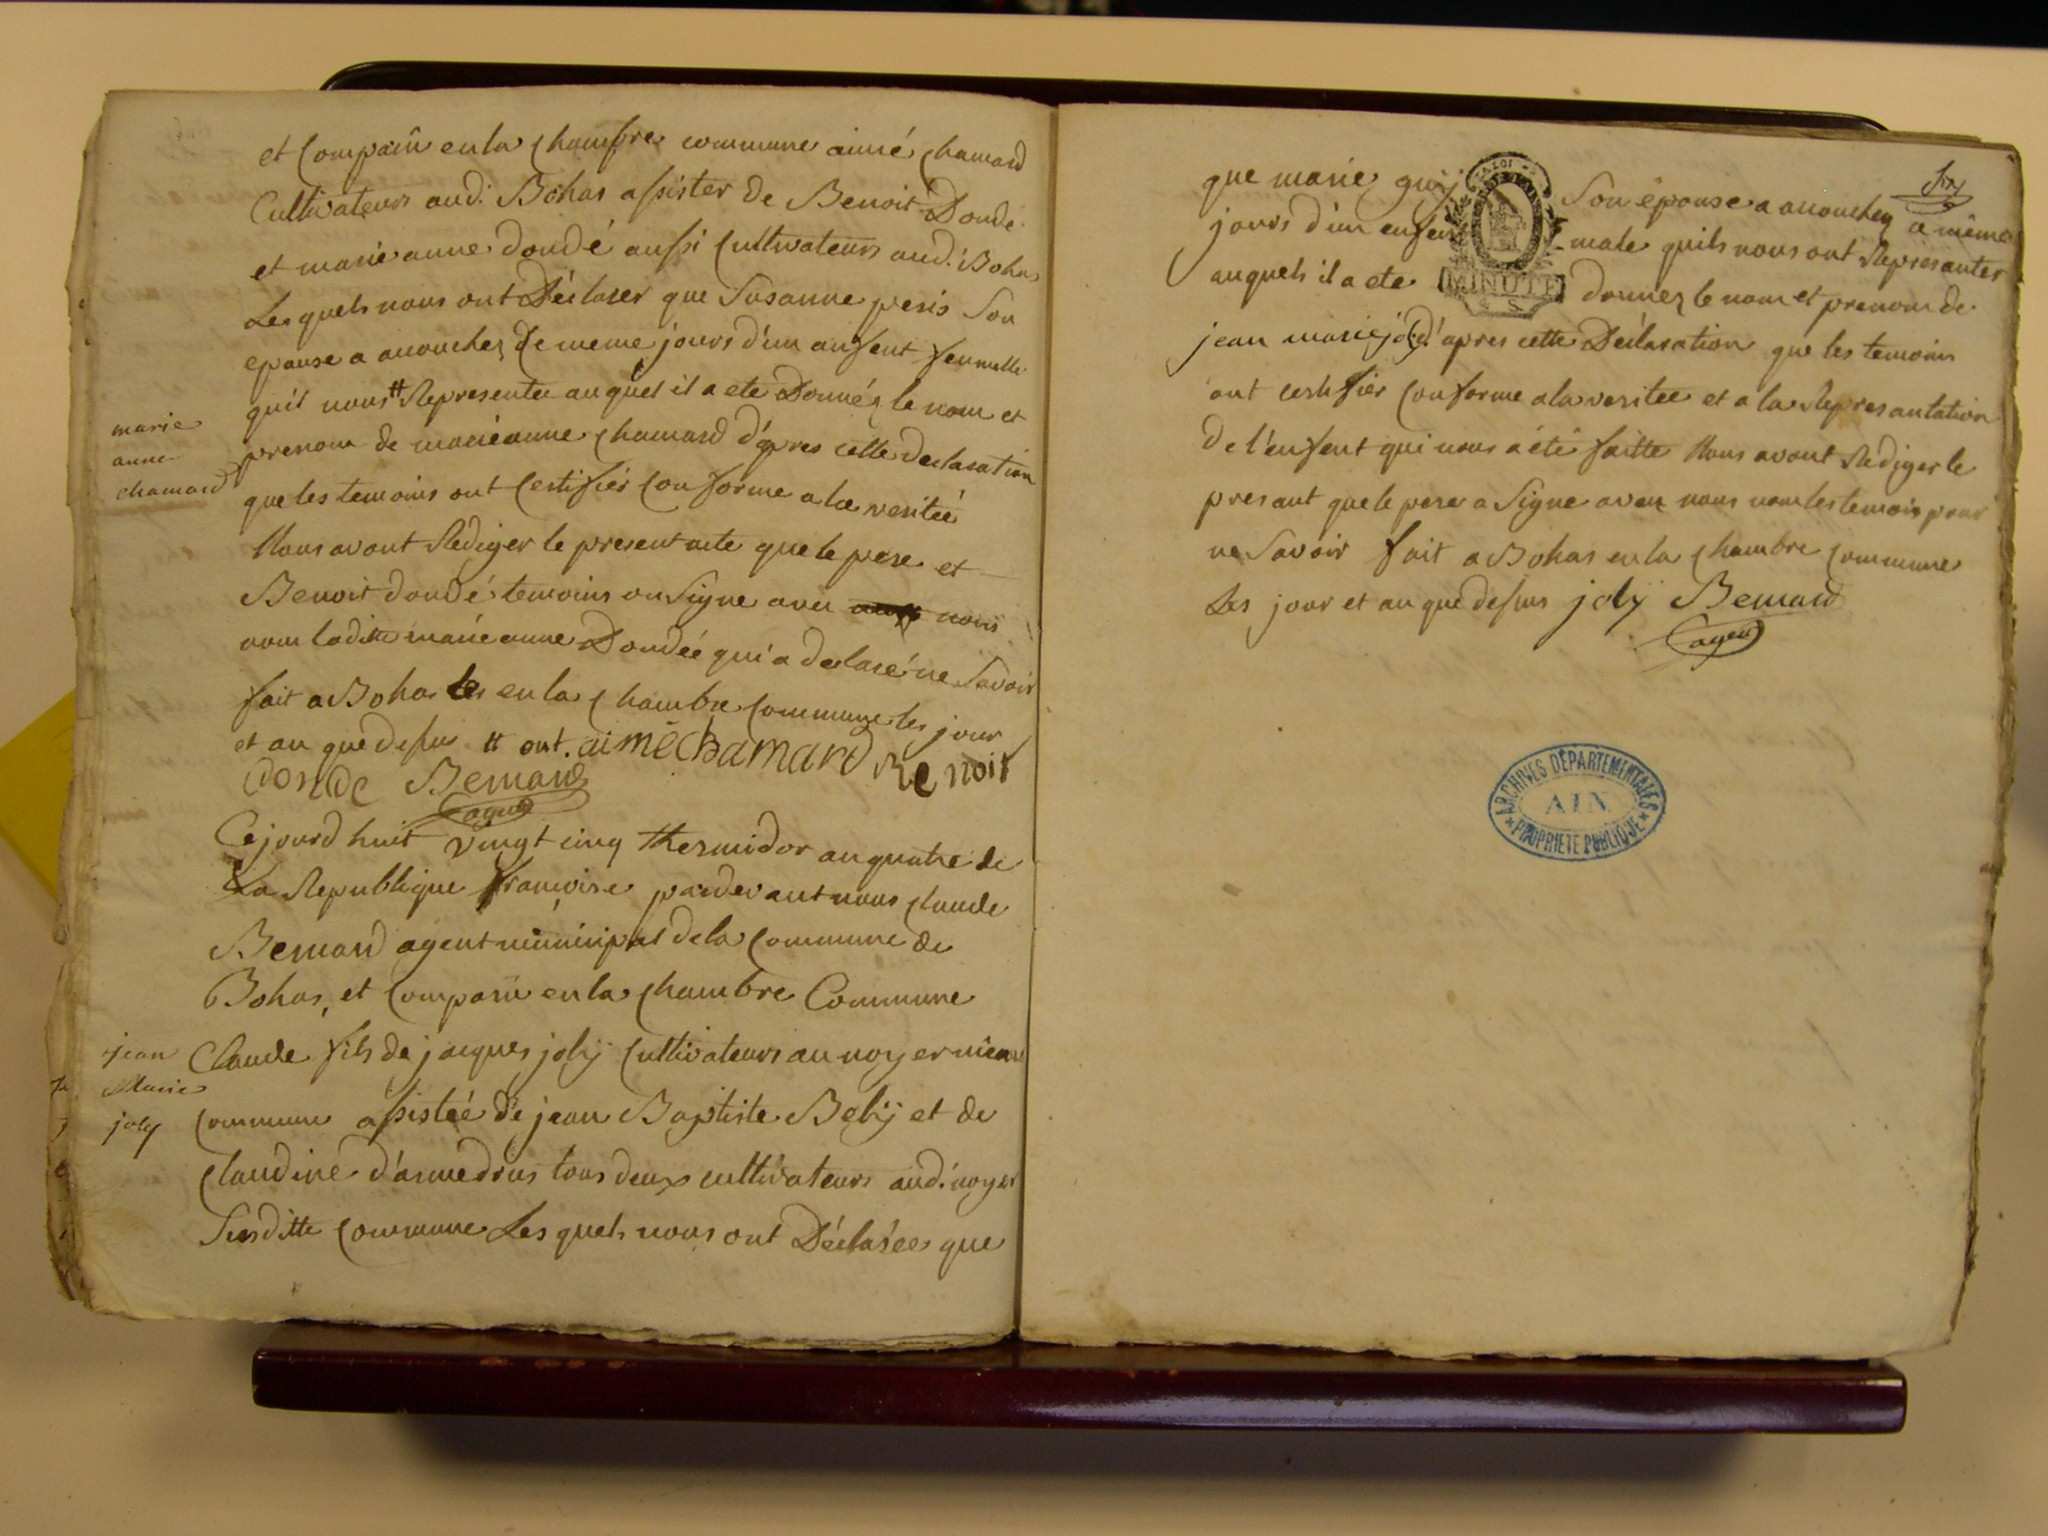 et Comparu en la Chambre commune aimé Chamard
Cultivateurs aud. Bohas assister de Benoit Donde
et marie anne dondé aussi Cultivateurs aud. Bohas
Les quels nous ont Déclarer que Susanne peris Son
epouse a acouchez de meme jours d'un anfent femmelle
qu'il nous # Representer auquel il a ete Donnéz le nom et
prenom de marieanne Chamard d'apres cette declaration
que les temoins ont Certifiér Conforme a la veritée
Nous avont Rediger le present acte que le pere et
Benoit dondé temoins on Signe avec nous
nom laditte marie anne Dondée qui a declaré ne Savoir
fait a Bohas en la Chambre Commune les jour
et an que dessus # ont. aimé Chamard Benoit
donde Bernard
agent
marie
anne
chamard
Cejourd huit vingt cinq thermidor an quatre de
La Republique francoise pardevant nous Claude
Bernard agent municipal de la Commune de
Bohas, et Comparu en la Chambre Commune
Claude fils de jacques joly Cultivateurs au noyer
Commune assistéé de jean Baptiste Boby et de
Claudine d'armedrus tous deux cultivateurs aud. noyer
Susditte Commune Les quels nous ont Déclarée que
jean
Marie
joly
six
que marie guy Son épouse a acouchez a même
jours d'un enfent male quils nous ont Represanter
auquels il a ete donnez le nom et prenom de
jean marie joly d'apres cette Déclaration que les temoins
ont certifier Conforme a la veritee et a la Represantation
de l'enfent qui nous a été faitte Nous avont Rediger le
presant que le pere a Signe avec nous nom les temoins pour
ne Savoir fait a Bohas en la Chambre Commune
Les jour et an que dessus joly Bernard
agent
MINUTE
ARCHIVES DÉPARTEMENTALES
AIN
PROPRIÉTÉ PUBLIQUE